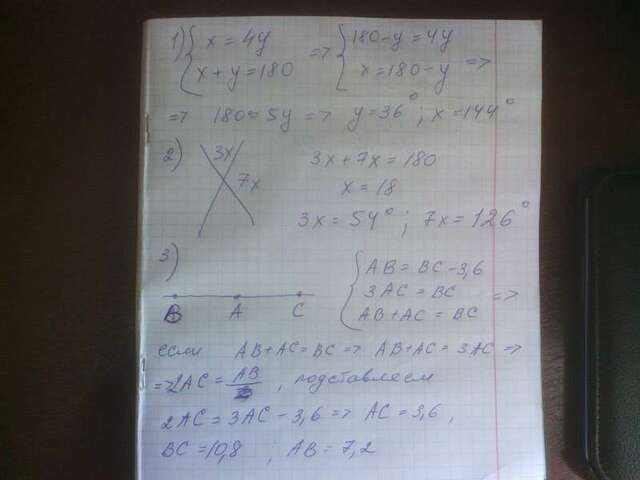 1) { x = 4y => { 180-y = 4y
x + y = 180 x = 180 - y =>
=> 180 = 5y => y = 36° ; x = 144°
2) 3x 3x + 7x = 180
7x x = 18
3x = 54° ; 7x = 126°
3) { AB = BC - 3,6
3AC = BC =>
B A C AB + AC = BC
если AB + AC = BC => AB + AC = 3AC =>
=> 2AC = AB , подставляем
2AC = 3AC - 3,6 => AC = 3,6 ,
BC = 10,8 ; AB = 7,2